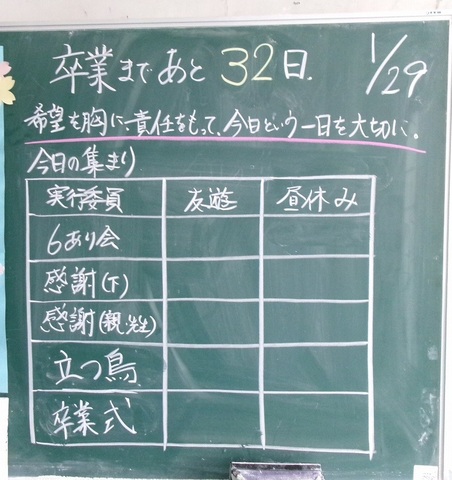 卒業まであと32日. 1/29
希望を胸に、責任をもって、今日という一日を大切に.
今日の集まり
実行委員 友遊 昼休み
6あり会
感謝(下)
感謝(親.先生)
立つ鳥
卒業式